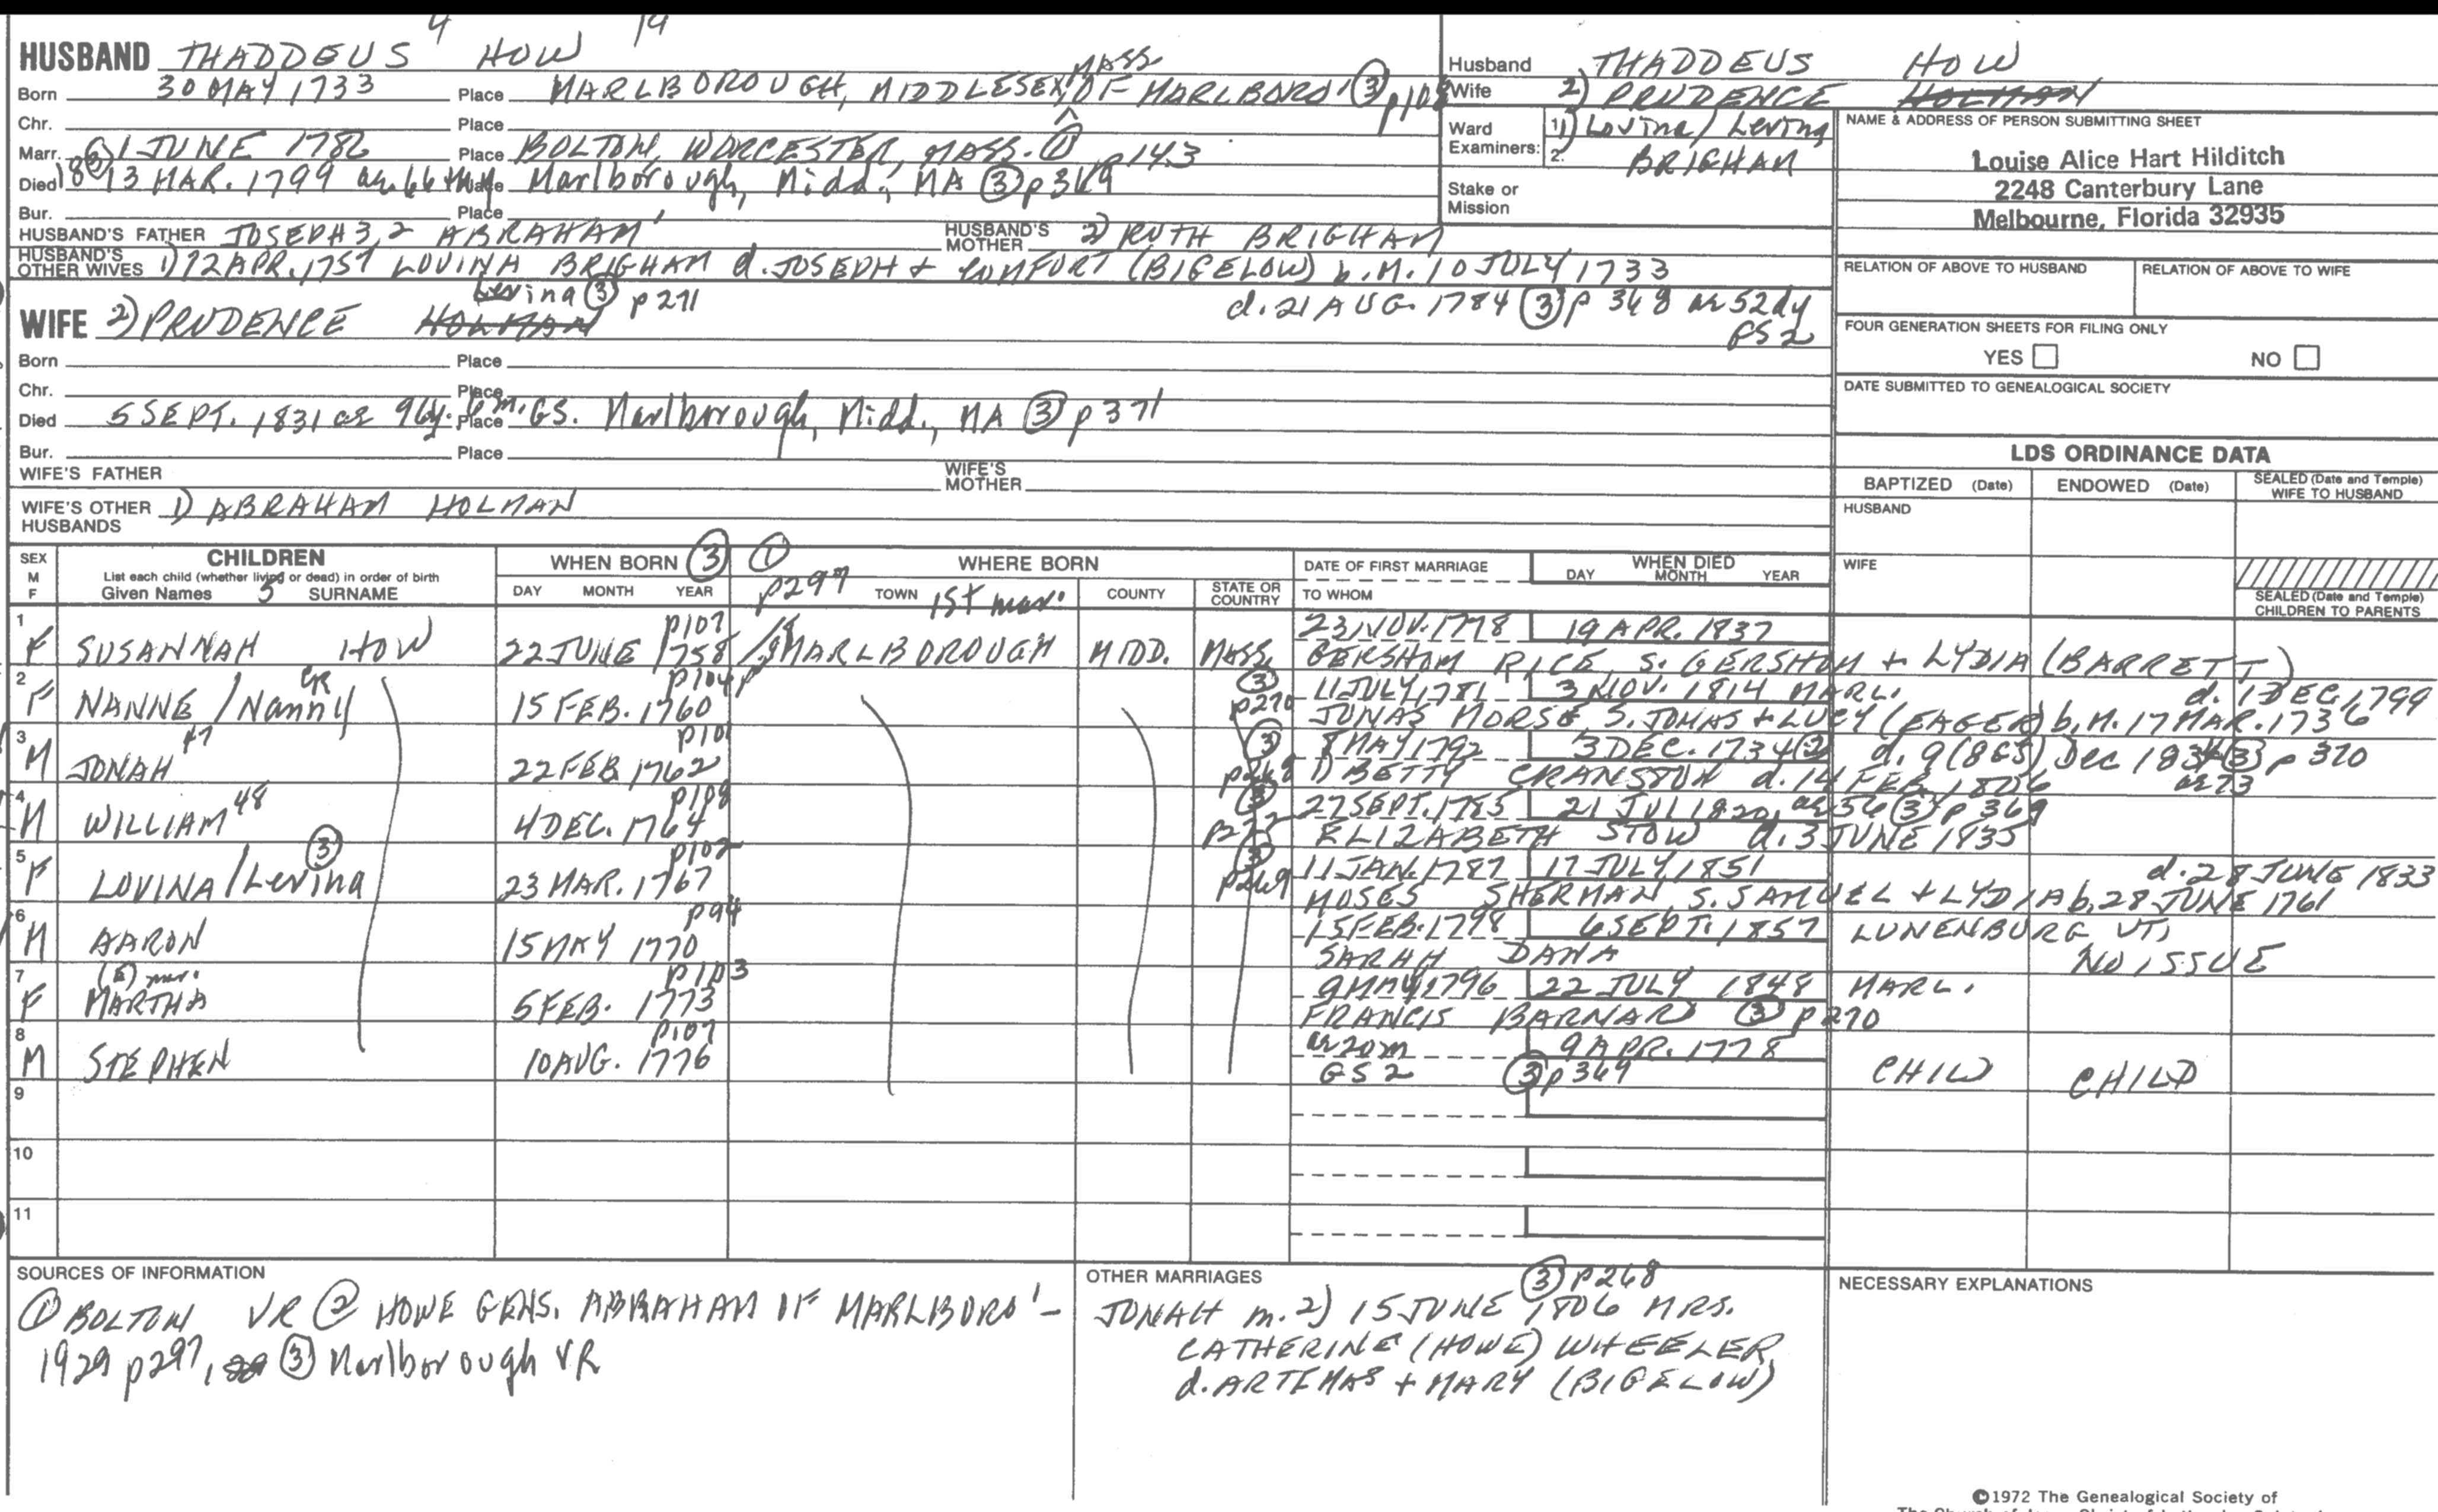 4 19
HUSBAND THADDEUS HOW
Born 30 MAY 1733 Place MARLBOROUGH, MIDDLESEX, MASS OF MARLBORO' ③
Chr. Place
Marr. 1 JUNE Place BOLTON, WORCESTER, MASS. ① p143
Died 13 MAR. 1799 Marlborough, Midd., MA ③ p369
Bur. Place
HUSBAND'S FATHER JOSEPH 3, 2 ABRAHAM' HUSBAND'S MOTHER 2) RUTH BRIGHAM
HUSBAND'S OTHER WIVES 1) 12 APR. 1757 LOVINA BRIGHAM d. JOSEPH + COMFORT (BIGELOW) b. M. 10 JULY 1733
Levina ③ p271 d. 21 AUG. 1784 ③ p 368 ae 52dy
GS 2
WIFE 2) PRUDENCE HOLMAN
Born Place
Chr. Place
Died 5 SEPT. 1831 ae 96y. 6m. GS. Place Marlborough, Midd., MA ③ p371
Bur. Place
WIFE'S FATHER WIFE'S MOTHER
WIFE'S OTHER HUSBANDS 1) ABRAHAM HOLMAN
Husband THADDEUS HOW
Wife 2) PRUDENCE HOLMAN
Ward Examiners: 1) Lovina / Levina
2. BRIGHAM
Stake or Mission
NAME & ADDRESS OF PERSON SUBMITTING SHEET
Louise Alice Hart Hilditch
2248 Canterbury Lane
Melbourne, Florida 32935
RELATION OF ABOVE TO HUSBAND RELATION OF ABOVE TO WIFE
FOUR GENERATION SHEETS FOR FILING ONLY
YES NO
DATE SUBMITTED TO GENEALOGICAL SOCIETY
LDS ORDINANCE DATA
BAPTIZED (Date) ENDOWED (Date) SEALED (Date and Temple) WIFE TO HUSBAND
HUSBAND
WIFE
SEALED (Date and Temple) CHILDREN TO PARENTS
SEX M F
CHILDREN
List each child (whether living or dead) in order of birth
Given Names 5 SURNAME
WHEN BORN ③ ①
DAY MONTH YEAR p297
WHERE BORN
TOWN 1st mar. COUNTY STATE OR COUNTRY
DATE OF FIRST MARRIAGE
TO WHOM
WHEN DIED
DAY MONTH YEAR
1 p107 23 NOV. 1778 19 APR. 1837
F SUSANNAH HOW 22 JUNE 1758 MARLBOROUGH MIDD. MASS. GERSHOM RICE S. GERSHOM + LYDIA (BARRETT)
2 GR p104 ③ 11 JULY, 1781 3 NOV. 1814 MARL. d. 1 DEC, 1799
F NANNE / Nanny 15 FEB. 1760 p270 JONAS MORSE S. JONAS + LUCY (EAGER) b. M. 17 MAR. 1736
3 47 p101 ③ 8 MAY 1792 3 DEC. 1734 ② d. 9 (8 GS) Dec 1834 ③ p 370
M JONAH 22 FEB 1762 p268 1) BETTY CRANSTON d. 14 FEB. 1806 ae 73
4 48 p108 ③ 27 SEPT. 1785 21 JUL 1820, ae 56 ③ p 369
M WILLIAM 4 DEC. 1764 ELIZABETH STOW d. 3 JUNE 1835
5 ③ p102 ③ 11 JAN. 1787 17 JULY 1851 d. 28 JUNE 1833
F LOVINA / Levina 23 MAR. 1767 p269 MOSES SHERMAN S. SAMUEL + LYDIA b. 28 JUNE 1761
6 p94 15 FEB. 1798 6 SEPT. 1857 LUNENBURG VT,
M AARON 15 MAY 1770 SARAH DANA NO ISSUE
7 mar. p103 9 MAY 1796 22 JULY 1848 MARL.
F MARTHA 5 FEB. 1773 FRANCIS BARNARD ③ p270
8 p107 ae 20m 9 APR. 1778
M STEPHEN 10 AUG. 1776 GS 2 ③ p369 CHILD CHILD
9
10
11
SOURCES OF INFORMATION
① BOLTON VR ② HOWE GENS. ABRAHAM OF MARLBORO' -
1929 p297, ③ Marlborough VR
OTHER MARRIAGES ③ p268
JONAH m. 2) 15 JUNE 1806 MRS.
CATHERINE (HOWE) WHEELER
d. ARTEMAS + MARY (BIGELOW)
NECESSARY EXPLANATIONS
©1972 The Genealogical Society of